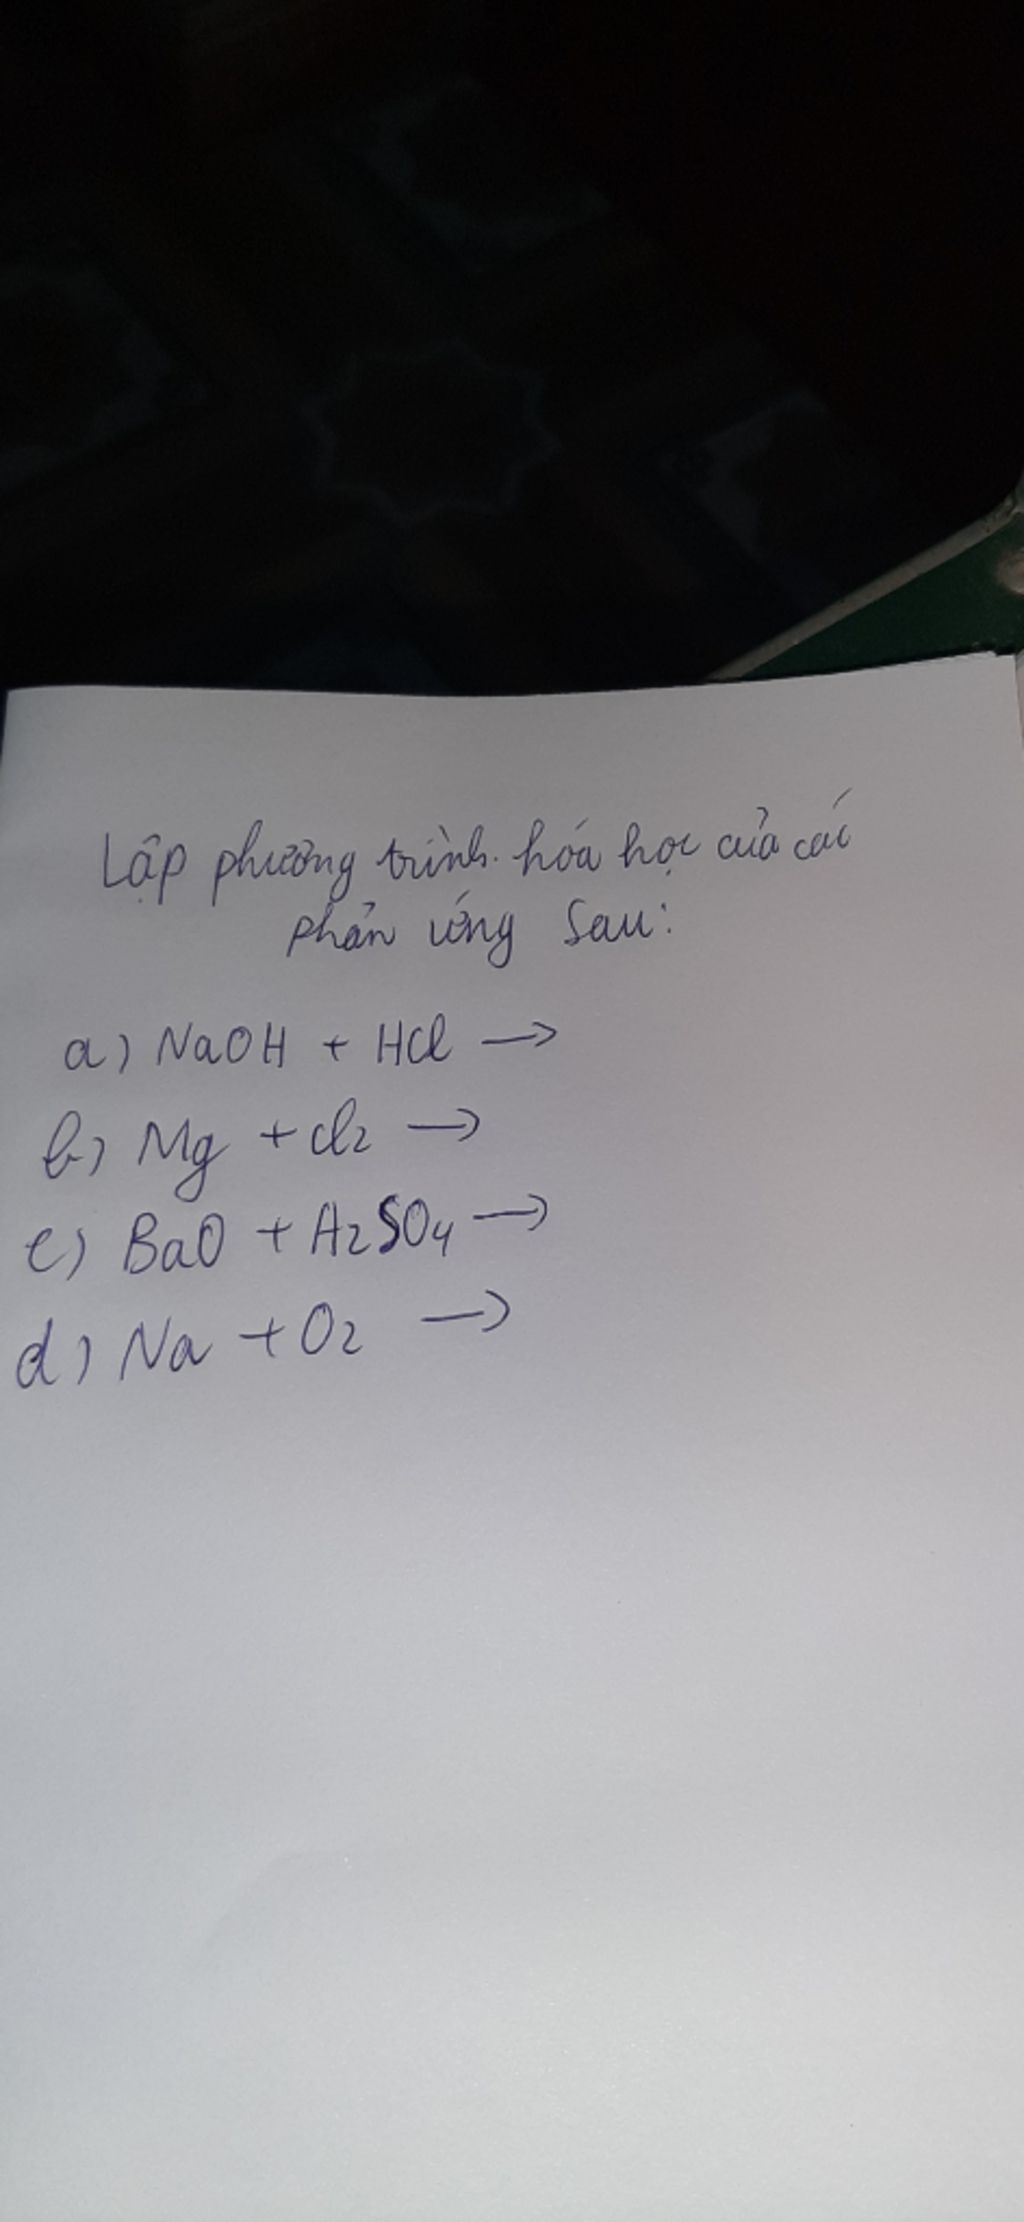 Lập phương trình hóa học của các
phản ứng sau:
a) NaOH + HCl →
b) Mg + Cl2 →
c) BaO + H2SO4 →
d) Na + O2 →